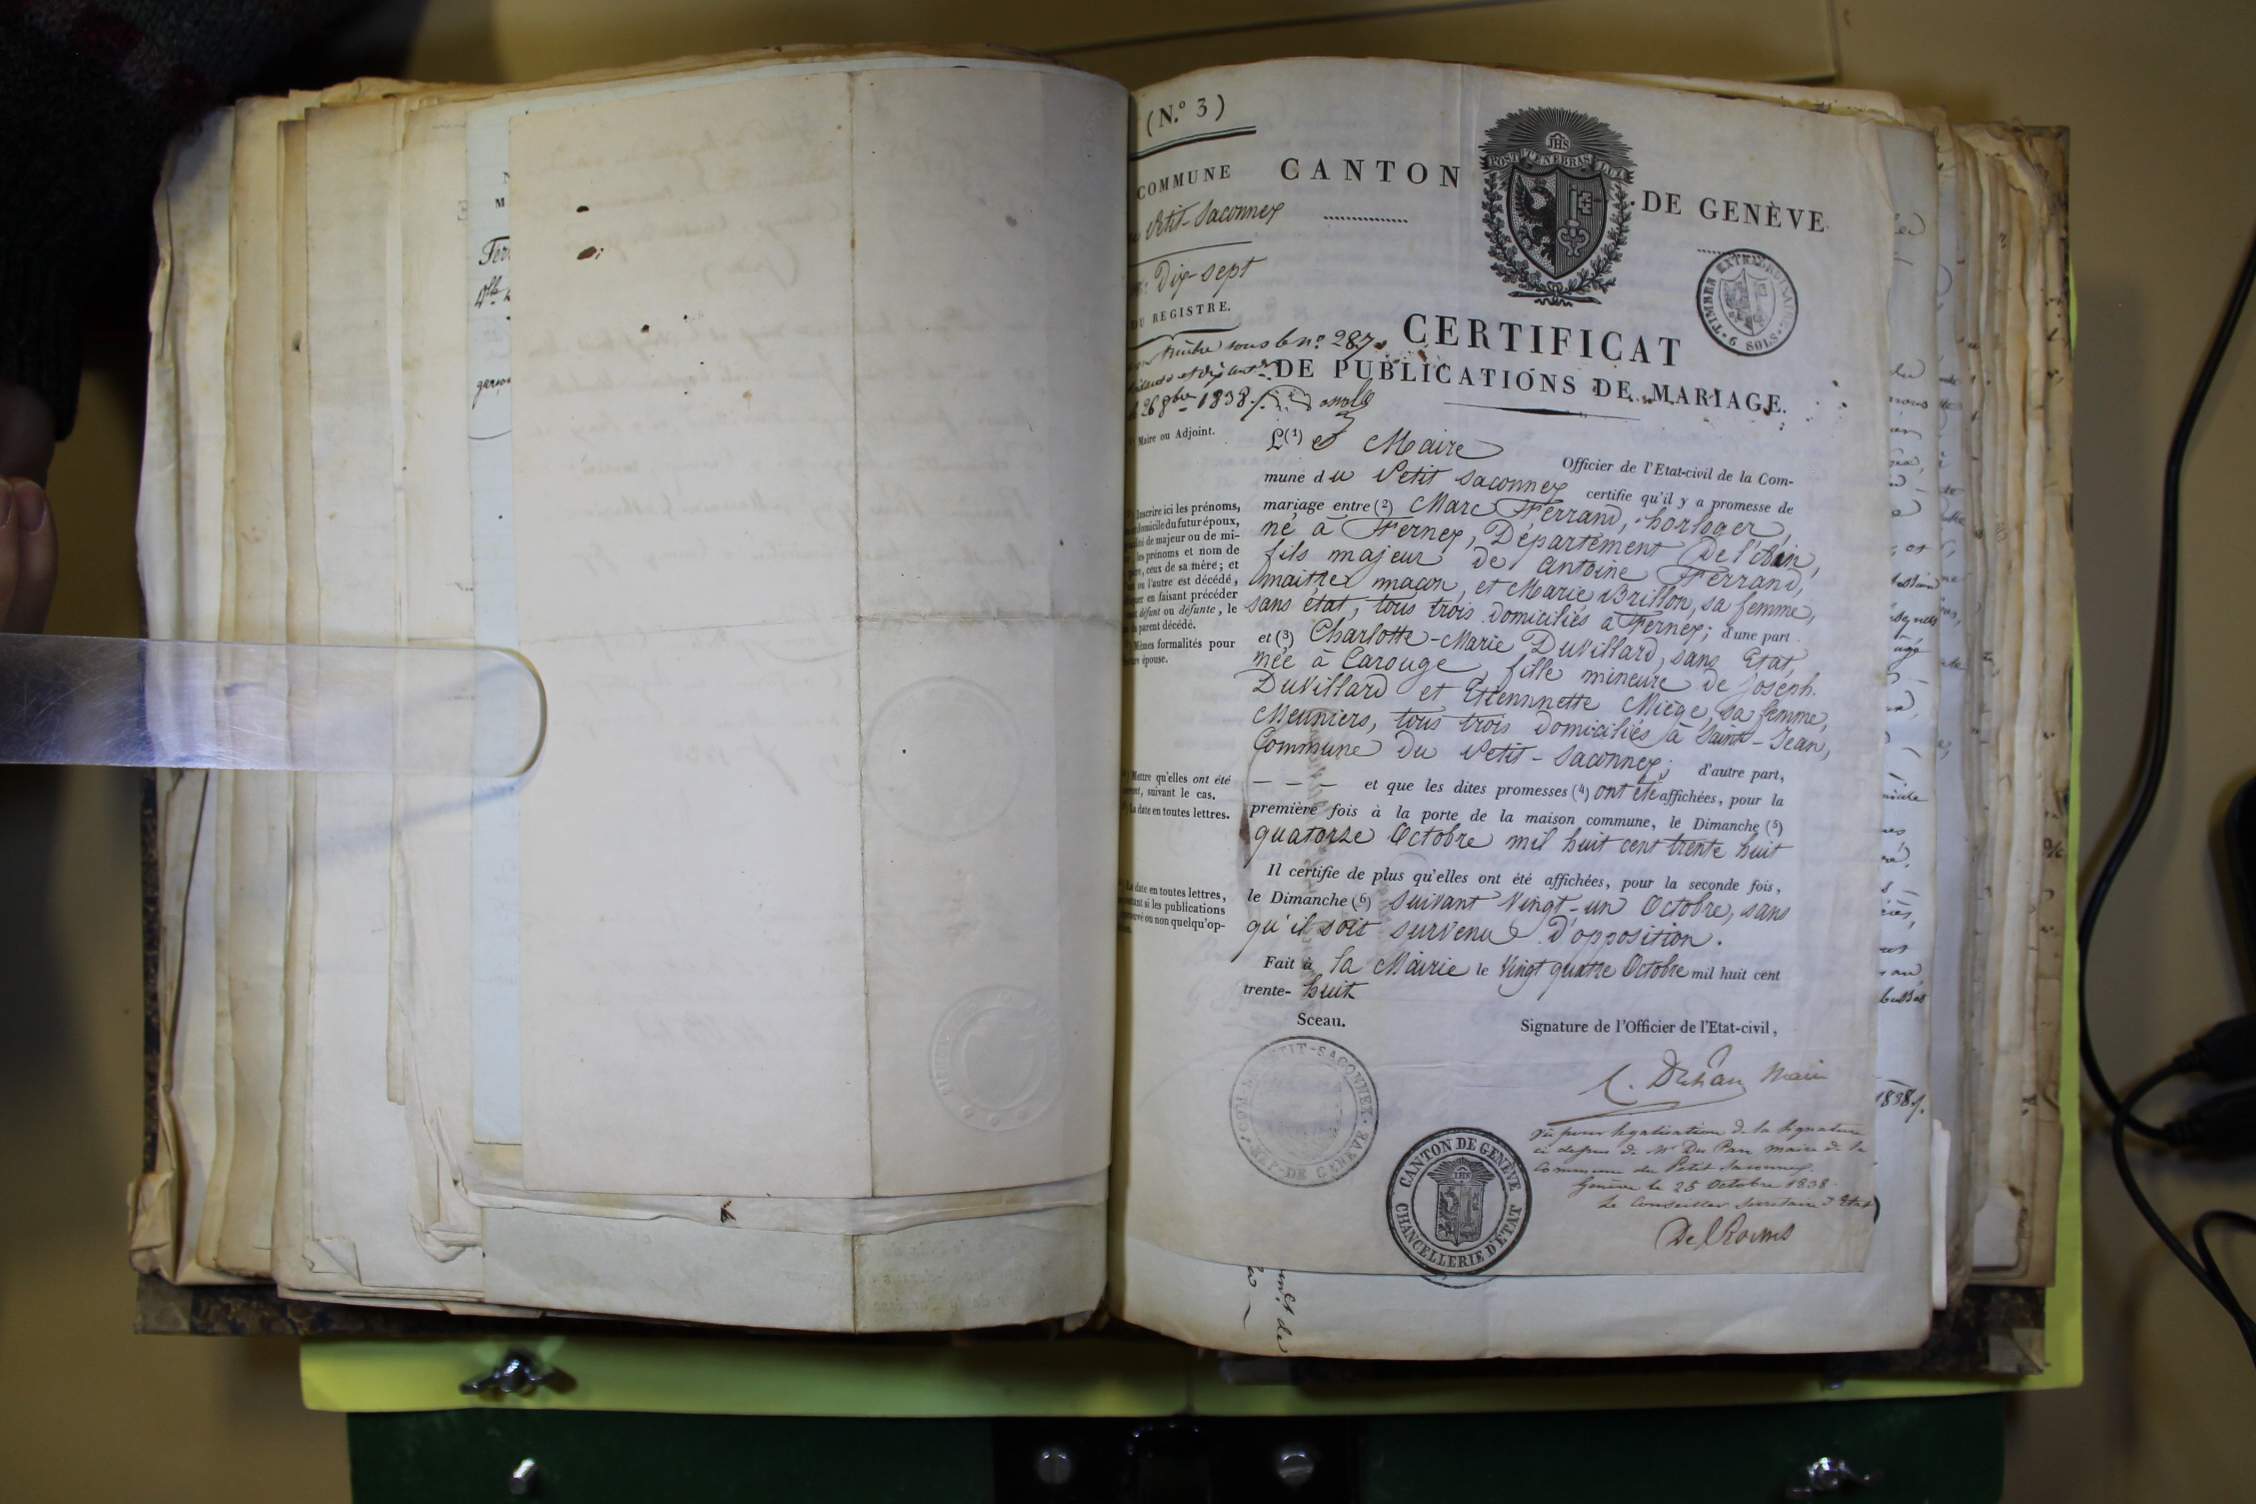 (N.º 3)
COMMUNE
Petit-Saconnex
Dix-sept
DU REGISTRE.
CANTON DE GENÈVE
POST TENEBRAS LUX
IHS
TIMBRE EXTRAORDINAIRE
6 SOLS
sous le nº 287
26 8bre 1838
CERTIFICAT
DE PUBLICATIONS DE MARIAGE.
Maire ou Adjoint.
L(1) e Maire Officier de l'Etat-civil de la Com-
mune du Petit Saconnex certifie qu'il y a promesse de
mariage entre (2) Marc Ferrand, horloger,
né à Fernex, Département De l'Ain,
fils majeur de Antoine Ferrand,
maître maçon, et Marie Brillon, sa femme,
sans état, tous trois domiciliés à Fernex; d'une part
et (3) Charlotte-Marie Duvillard, sans Etat,
née à Carouge, fille mineure de Joseph
Duvillard et Etiennette Miège, sa femme,
Meuniers, tous trois domiciliés à Saint-Jean,
Commune du Petit-Saconnex; d'autre part,
— — — et que les dites promesses (4) ont été affichées, pour la
première fois à la porte de la maison commune, le Dimanche (5)
quatorze Octobre mil huit cent trente huit
Il certifie de plus qu'elles ont été affichées, pour la seconde fois,
le Dimanche (6) suivant Vingt-un Octobre, sans
qu'il soit survenu d'opposition.
Fait à la Mairie le Vingt quatre Octobre mil huit cent
trente- huit
Inscrire ici les prénoms,
domicile du futur époux,
de majeur ou de mi-
les prénoms et nom de
ceux de sa mère; et
ou l'autre est décédé,
en faisant précéder
défunt ou défunte, le
parent décédé.
Mêmes formalités pour
épouse.
Mettre qu'elles ont été
suivant le cas.
La date en toutes lettres.
La date en toutes lettres,
si les publications
ou non quelqu'op-
Sceau.
Signature de l'Officier de l'Etat-civil,
Maire
PETIT-SACONNEX
DE GENÈVE
CANTON DE GENÈVE
CHANCELLERIE D'ÉTAT
Vu pour légalisation de la signature
ci dessus de Mr Du Pan maire de la
Commune du Petit Saconnex.
Genève le 25 Octobre 1838.
Le Conseiller Secrétaire d'Etat
De Roches